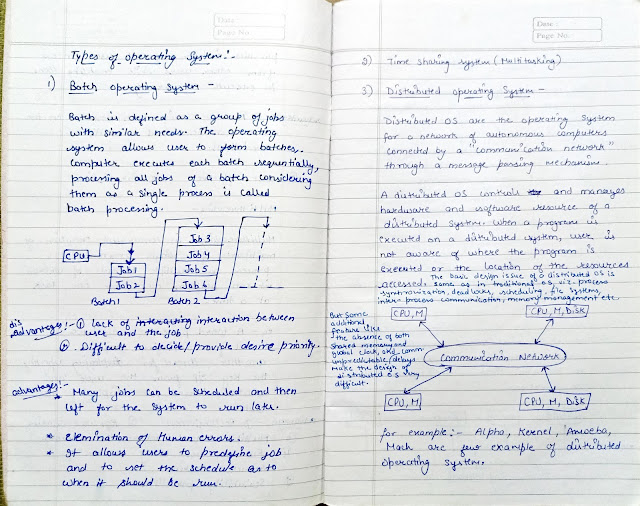 Date :
Page No.
Types of operating System:-
1) Batch operating System -
Batch is defined as a group of jobs
with similar needs. The operating
system allows user to form batches.
Computer executes each batch sequentially,
processing all jobs of a batch considering
them as a single process is called
batch processing.
CPU
Job 1
Job 2
Batch 1
Job 3
Job 4
Job 5
Job 6
Batch 2
disadvantages:- ① lack of interacting interaction between
user and the job.
② Difficult to decide/provide desire priority.
advantages:-
* Many jobs can be scheduled and then
left for the System to run later.
* elemination of Human errors.
* It allows users to predefine job
and to set the schedule as to
when it should be run.
Date :
Page No.
2) Time sharing system (Multitasking)
3) Distributed operating System -
Distributed OS are the operating System
for a network of autonomous computers
connected by a "communication network"
through a message parsing mechanism.
A distributed OS controls and manages
hardware and software resource of a
distributed System. When a program is
executed on a distributed system, user is
not aware of where the program is
executed or the location of the resources
accessed. The basic design issue of a distributed OS is
same as in traditional OS viz. process
synchronization, deadlocks, scheduling, file systems,
inter-process communication, memory management etc.
But some
additional
feature like
the absence of both
shared memory and
global clock, and comm.
unpredictable delays
make the design of
distributed OS very
difficult.
CPU, M
CPU, M, Disk
Communication Network
CPU, M
CPU, M, Disk
for example:- Alpha, Kernel, Amoeba,
Mach are few example of distributed
operating System.